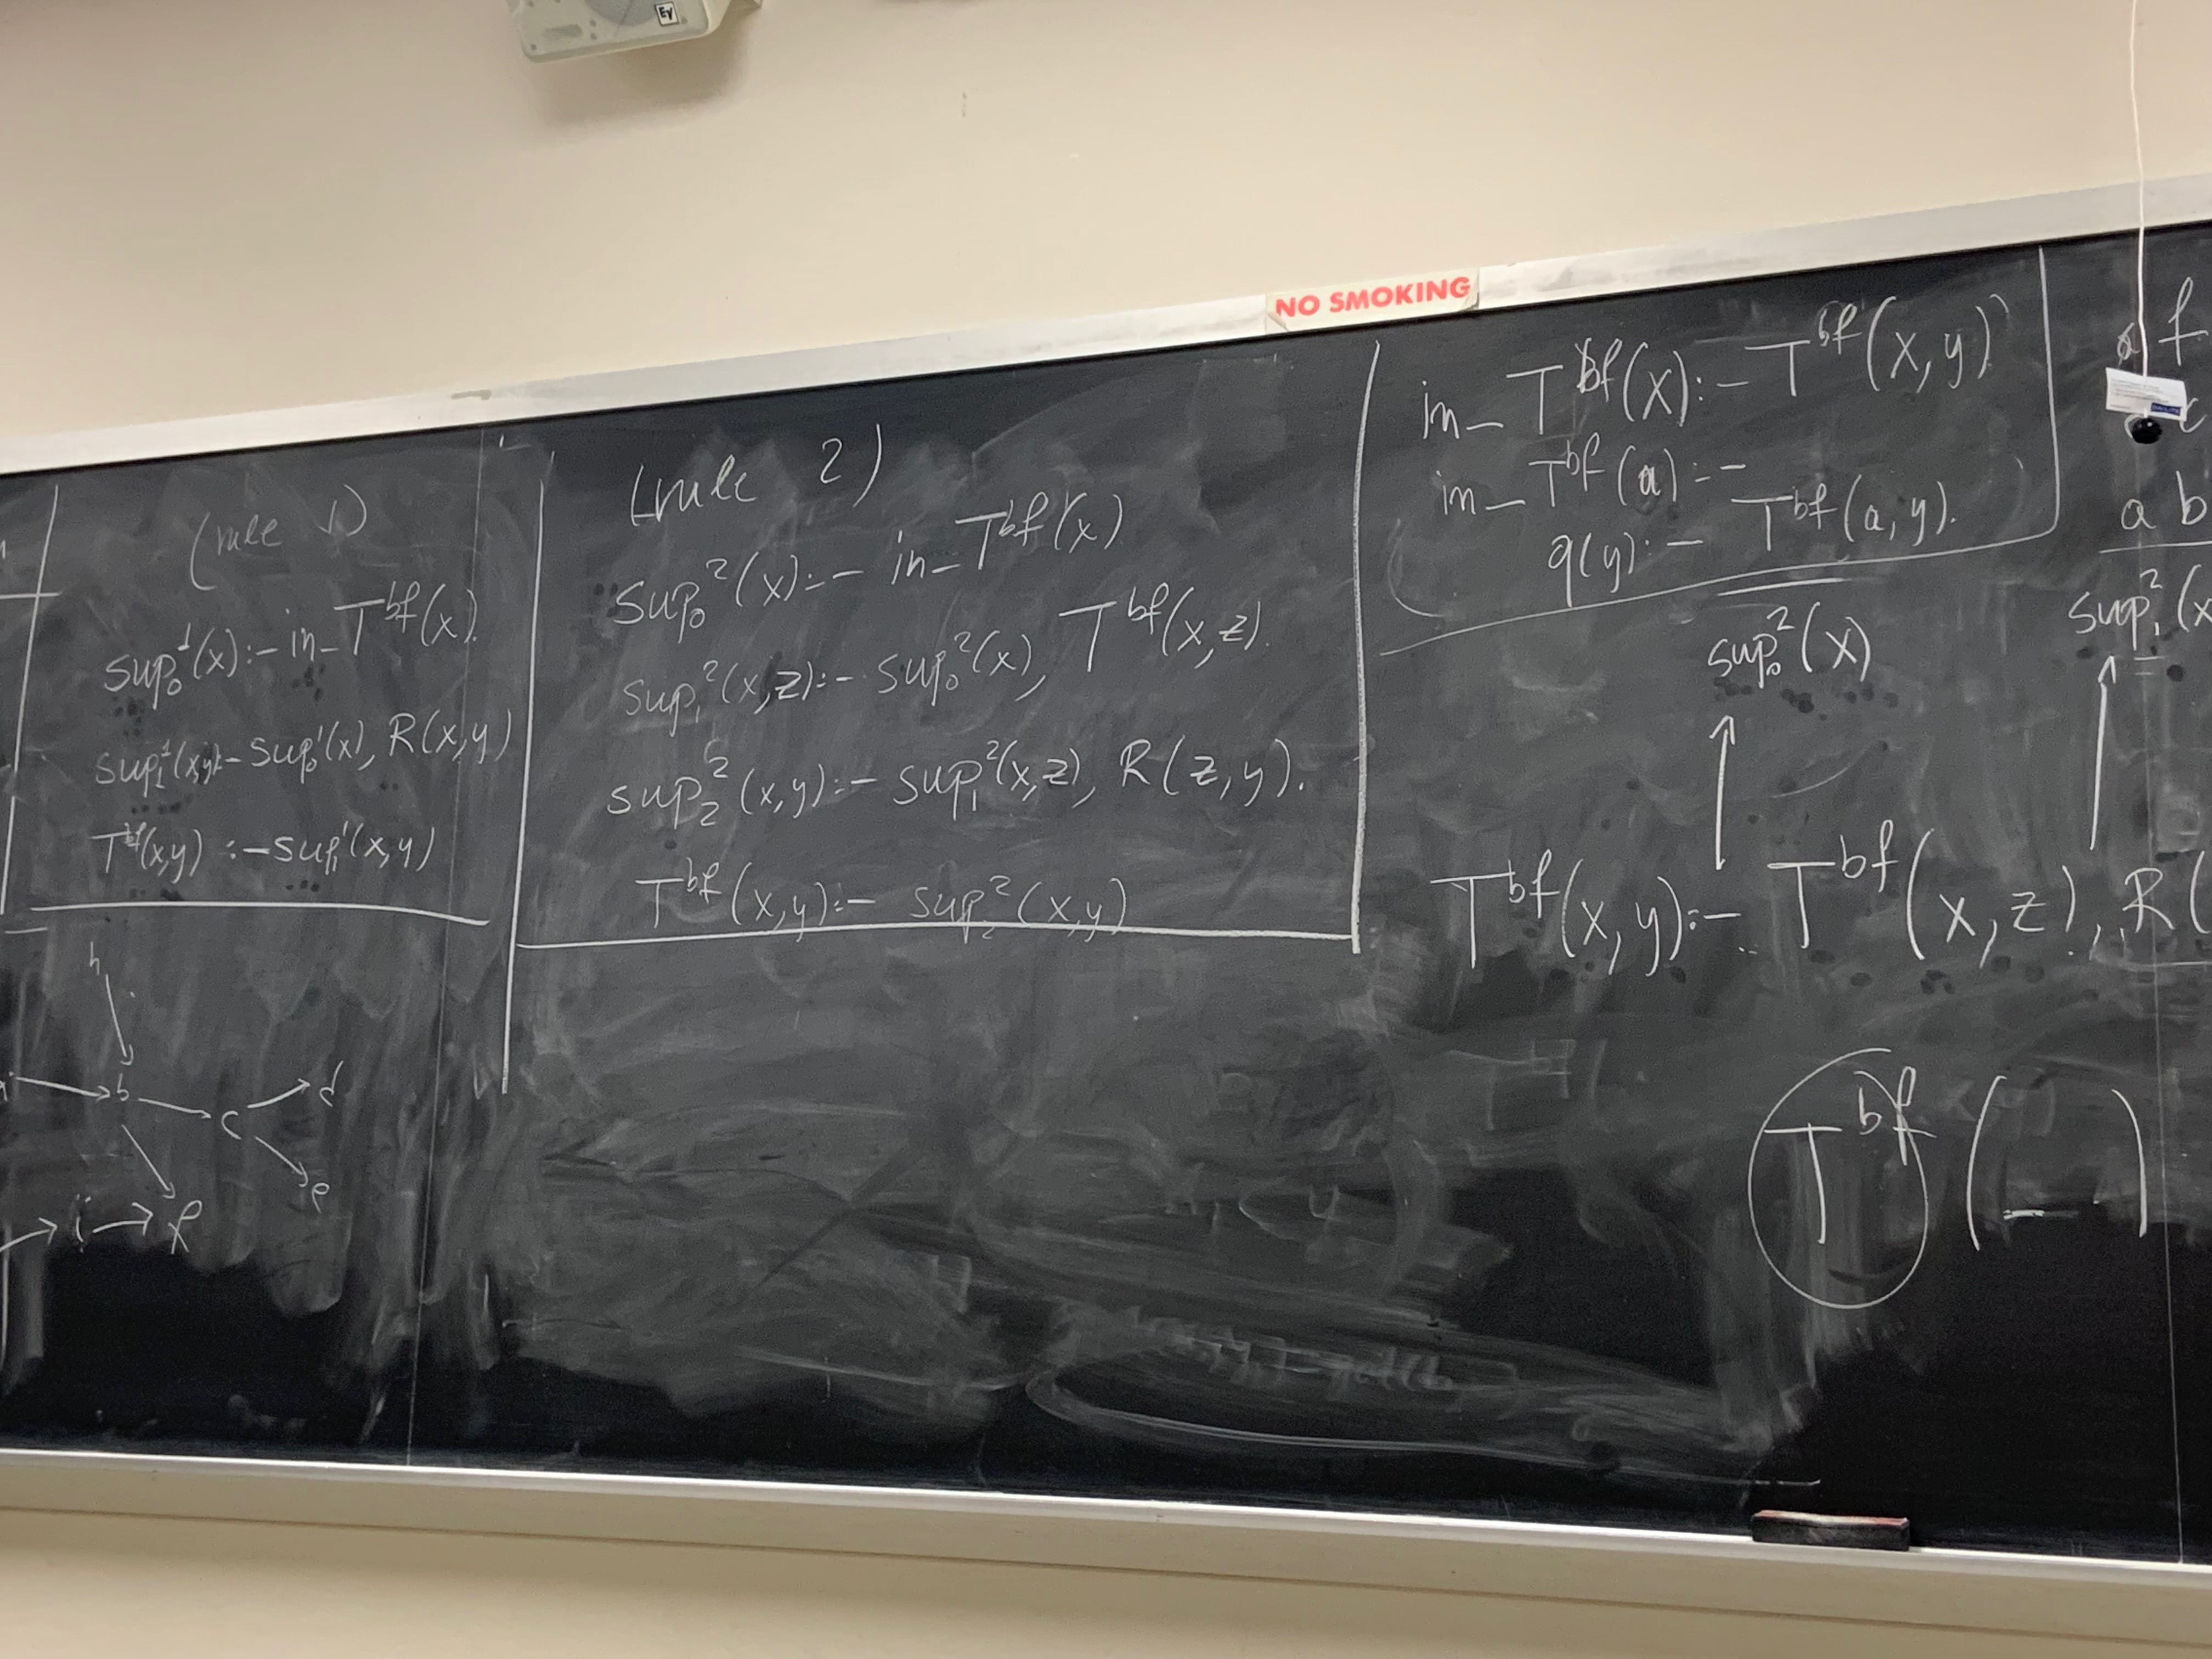 EV
NO SMOKING
(rule 1)
sup₀¹(x):- in_T^bf(x).
sup₁¹(x,y):- sup₀¹(x), R(x,y)
T^bf(x,y) :- sup₁¹(x,y)
h
b
c
d
e
i
f
(rule 2)
sup₀²(x):- in_T^bf(x)
sup₁²(x,z):- sup₀²(x), T^bf(x,z).
sup₂²(x,y):- sup₁²(x,z), R(z,y).
T^bf(x,y):- sup₂²(x,y)
in_T^bf(x):- T^bf(x,y)
in_T^bf(a):-
q(y):- T^bf(a,y).
sup₀²(x)
T^bf(x,y):- T^bf(x,z), R(
T^bf(_)
f
a b
sup₁²(x